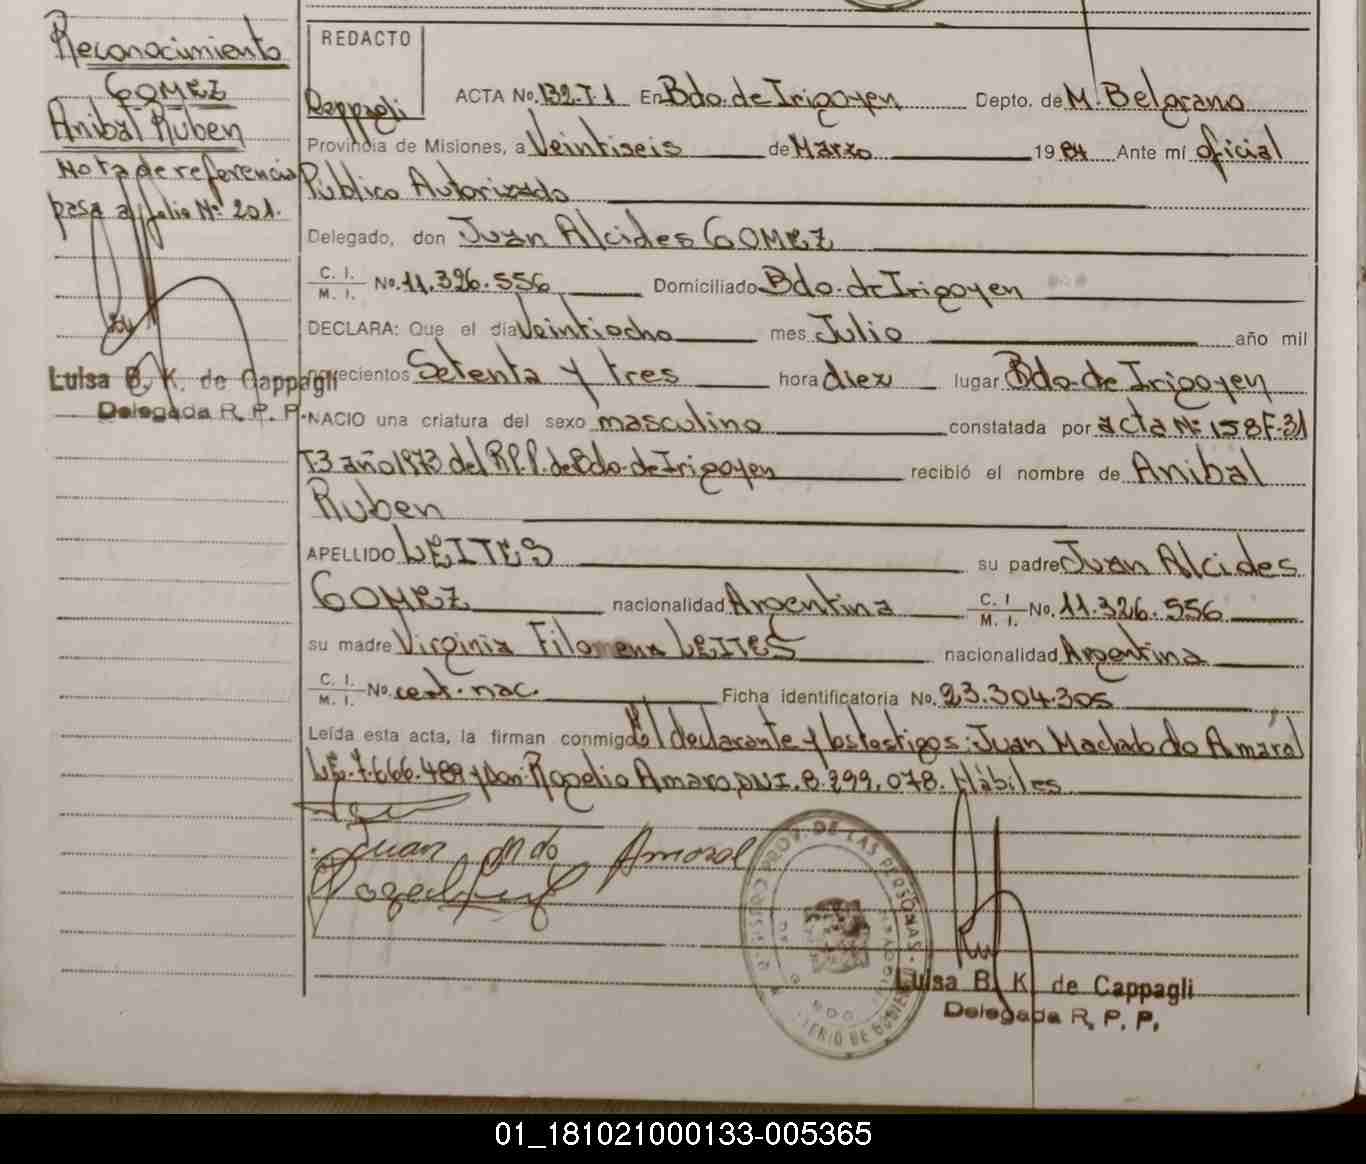 Reconocimiento
GOMEZ
Anibal Ruben
Nota de referencia
pasa al folio Nº 201.
Luisa B. K. de Cappagli
Delegada R. P. P.
REDACTO
Cappagli
ACTA No. 132.T.1 En Bdo. de Irigoyen Depto. de M. Belgrano
Provincia de Misiones, a Veintiseis de Marzo 1984 Ante mí oficial
Público Autorizado
Delegado, don Juan Alcides GOMEZ
C. I. / M. I. No. 11.326.556 Domiciliado Bdo. de Irigoyen
DECLARA: Que el día Veintiocho mes Julio año mil
novecientos Setenta y tres hora diez lugar Bdo. de Irigoyen
NACIO una criatura del sexo masculino constatada por acta Nº 158 F.31
T3 año 1973 del R.P.P. de Bdo. de Irigoyen recibió el nombre de Anibal
Ruben
APELLIDO LEITES su padre Juan Alcides
GOMEZ nacionalidad Argentina C. I / M. I. No. 11.326.556
su madre Virginia Filomena LEITES nacionalidad Argentina
C. I. / M. I. No. cert. nac. Ficha identificatoria No. 23.304.305
Leída esta acta, la firman conmigo El declarante y los testigos: Juan Machado do Amaral
L.E. 7.666.489 y Don Rogelio Amaro, DNI. 8.299.078. Hábiles
Juan Mdo Amaral
REGISTRO PROV. DE LAS PERSONAS
Luisa B. K. de Cappagli
Delegada R. P. P.
01_181021000133-005365